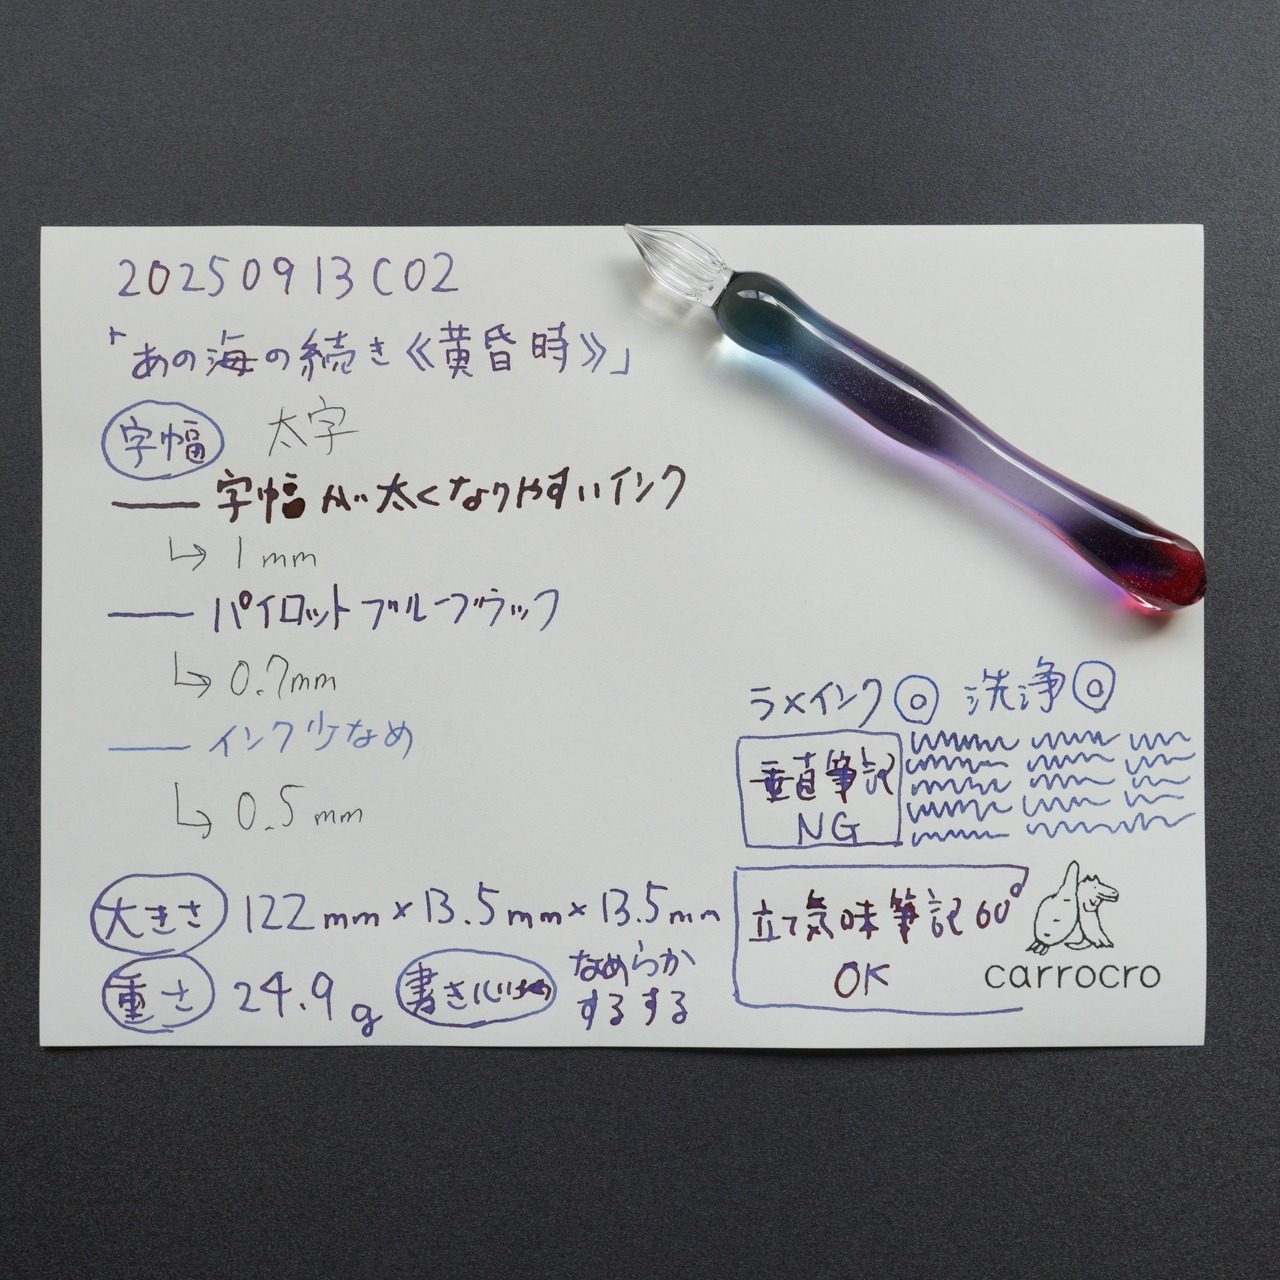 20250913C02
「あの海の続き《黄昏時》」
字幅 太字
字幅が太くなりやすいインク
↳ 1mm
パイロットブルーブラック
↳ 0.7mm
インク少なめ
↳ 0.5mm
大きさ 122mm×13.5mm×13.5mm
重さ 24.9g 書き心地 なめらか
するする
ラメインク◎ 洗浄◎
垂直筆記
NG
立て気味筆記60°
OK
carrocro